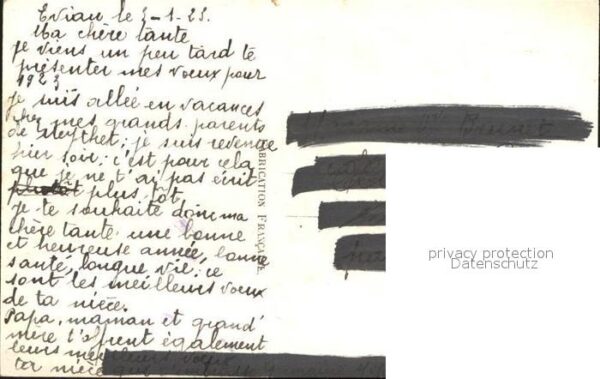 Evian le 3-1-23.
Ma chère tante
je viens un peu tard te
présenter mes voeux pour
1923
je suis allée en vacances
chez mes grands-parents
de ; je suis revenue
hier soir; c'est pour cela
que je ne t'ai pas écrit
plus tôt.
je te souhaite donc ma
chère tante une bonne
et heureuse année, bonne
santé, longue vie; ce
sont les meilleurs voeux
de ta nièce.
Papa, maman et grand'
mère t'offrent également
leurs meilleurs voeux
ta nièce
FABRICATION FRANÇAISE
privacy protection
Datenschutz